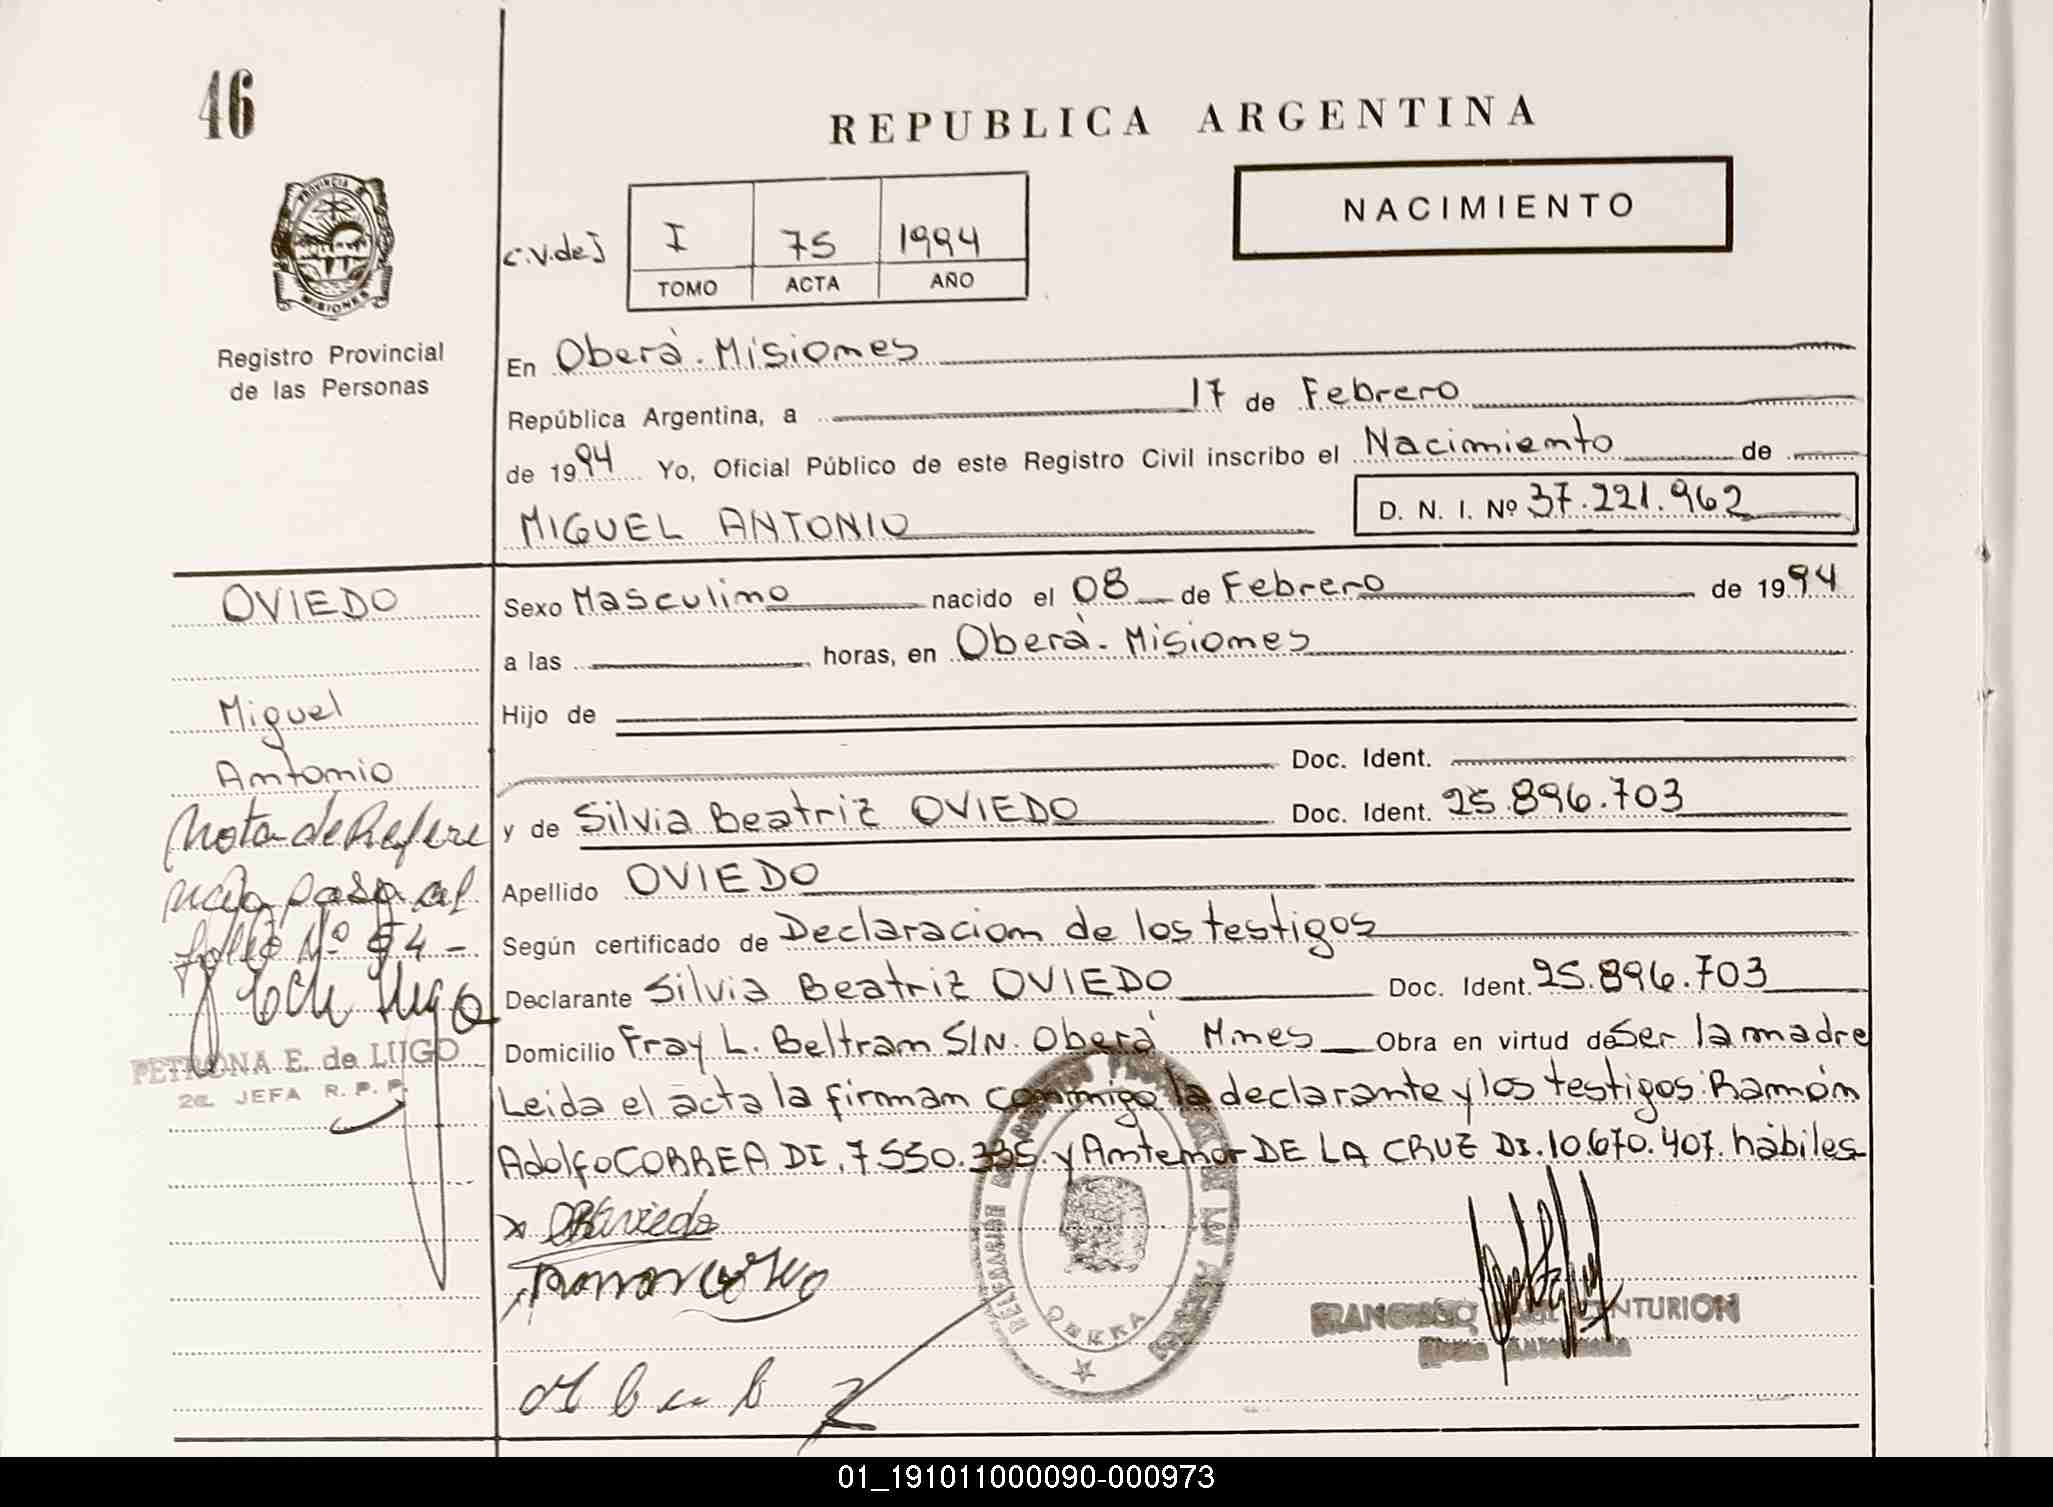 46
REPUBLICA ARGENTINA
PROVINCIA DE
MISIONES
Registro Provincial
de las Personas
NACIMIENTO
C.V.deJ
I 75 1994
TOMO ACTA AÑO
En Oberá. Misiones
República Argentina, a 17 de Febrero
de 1994 Yo, Oficial Público de este Registro Civil inscribo el Nacimiento de
MIGUEL ANTONIO D. N. I. Nº 37.221.962
OVIEDO
Miguel
Antonio
Nota de Refere
ncia pasa al
folio Nº 54-
PETRONA E. de LUGO
2a. JEFA R. P. P.
Sexo Masculino nacido el 08 de Febrero de 1994
a las horas, en Oberá. Misiones
Hijo de
Doc. Ident.
y de Silvia Beatriz OVIEDO Doc. Ident. 25.896.703
Apellido OVIEDO
Según certificado de Declaracion de los testigos
Declarante Silvia Beatriz OVIEDO Doc. Ident. 25.896.703
Domicilio Fray L. Beltram S/N. Oberá Mnes Obra en virtud de Ser la madre
Leida el acta la firman conmigo la declarante y los testigos: Ramón
Adolfo CORREA DI. 7550.335. y Antenor DE LA CRUZ DI. 10.670.407. hábiles
OBERA
CENTURION
01_191011000090-000973